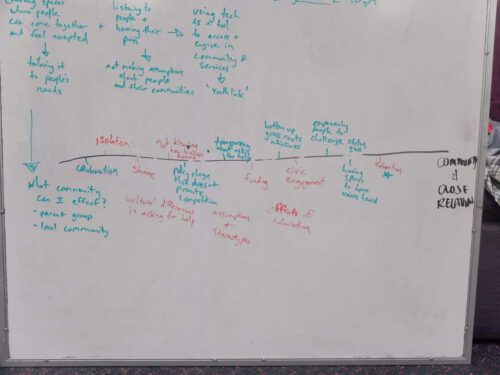 where people
can come together +
and feel accepted
tailoring it
to people's
needs
listening to
people +
hearing their
pain
not making assumptions
about people
and their communities
using tech
as a tool
to access +
engage in
community &
services
isolation
not knowing
bottom up
grass roots
initiatives
empowering
people to
challenge status
quo
educating
collaboration
shame
policy change
that doesn't
promote
competition
funding
civic
engagement
having
spaces
to have
voices heard
COMMUNITY
&
CLOSE
RELATION
what community
can I effect?
- parent group
- local community
cultural differences
in asking for help
assumptions
+
stereotypes
effects of
colonisation